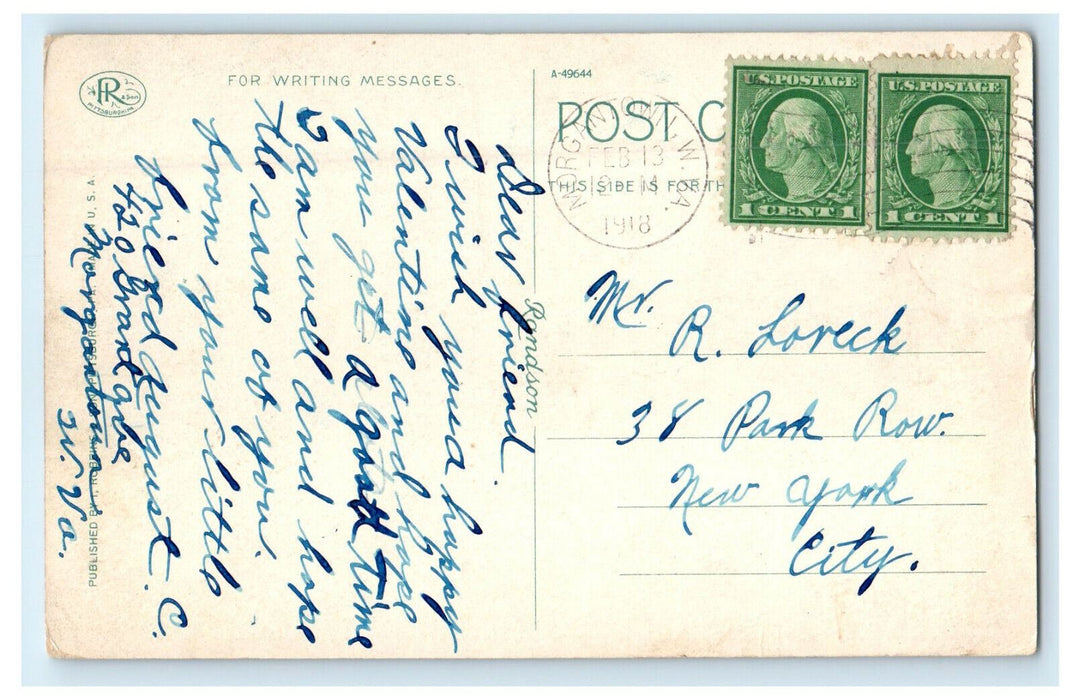 PR
PITTSBURGH PA.
FOR WRITING MESSAGES.
A-49644
POST C
THIS SIDE IS FOR TH
MORGANTOWN W.VA.
FEB 13
12 - M
1918
U.S. POSTAGE
1 CENT 1
U.S. POSTAGE
1 CENT 1
Dear friend.
I wish you a happy
Valentine and hope
you get a good time
I am well and hope
the same of you.
from your little
friend August. C.
420 Grand
Morgantown
W. Va.
Rondson
Mr.
R. Loreck
38 Park Row.
New York
City.
PUBLISHED BY I. ROBBINS & SON, PITTSBURGH, PA. U. S. A.